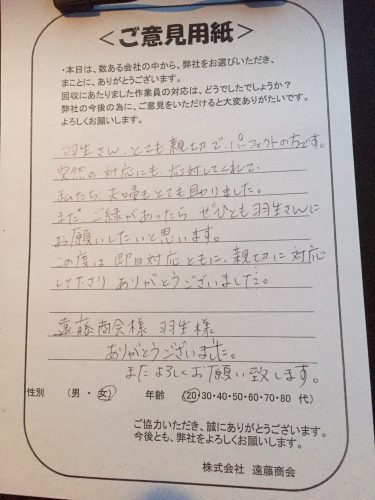 ＜ご意見用紙＞
・本日は、数ある会社の中から、弊社をお選びいただき、
まことに、ありがとうございます。
回収にあたりました作業員の対応は、どうでしたでしょうか？
弊社の今後の為に、ご意見をいただけると大変ありがたいです。
よろしくお願いします。
羽生さん、とても親切で、パーフェクトの方です。
突然の対応にも、応対してくれて、
私たち、夫婦もとても助りました。
また、ご縁があったら、ぜひとも羽生さんに
お願いしたいと思います。
この度は即日対応ともに、親切に対応
して下さり ありがとうございました。
遠藤商会様 羽生様
ありがとうございました。
またよろしくお願い致します。
性別 （男・女） 年齢 （20・30・40・50・60・70・80 代）
ご協力いただき、誠にありがとうございます。
今後とも、弊社をよろしくお願いします。
株式会社 遠藤商会